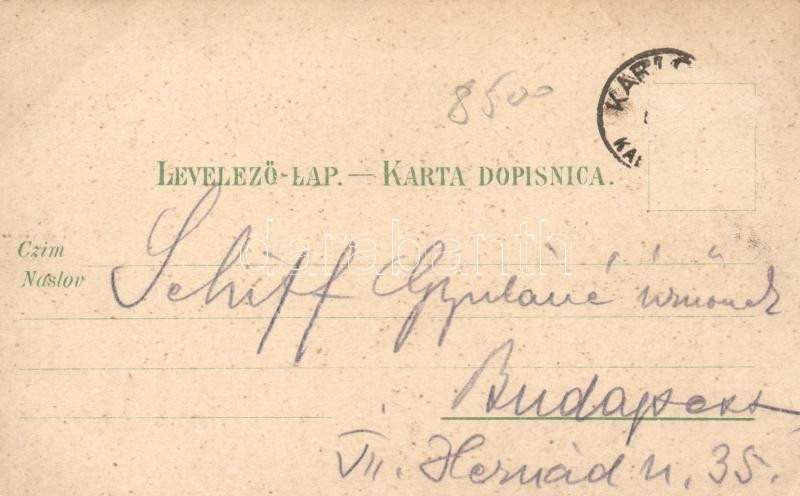 8500
KARLO
KAR
LEVELEZŐ-LAP. — KARTA DOPISNICA.
darabanth
Czim
Naslov
Schiff Gyuláné úrnőnek
Budapest
VII. Hernád u. 35.